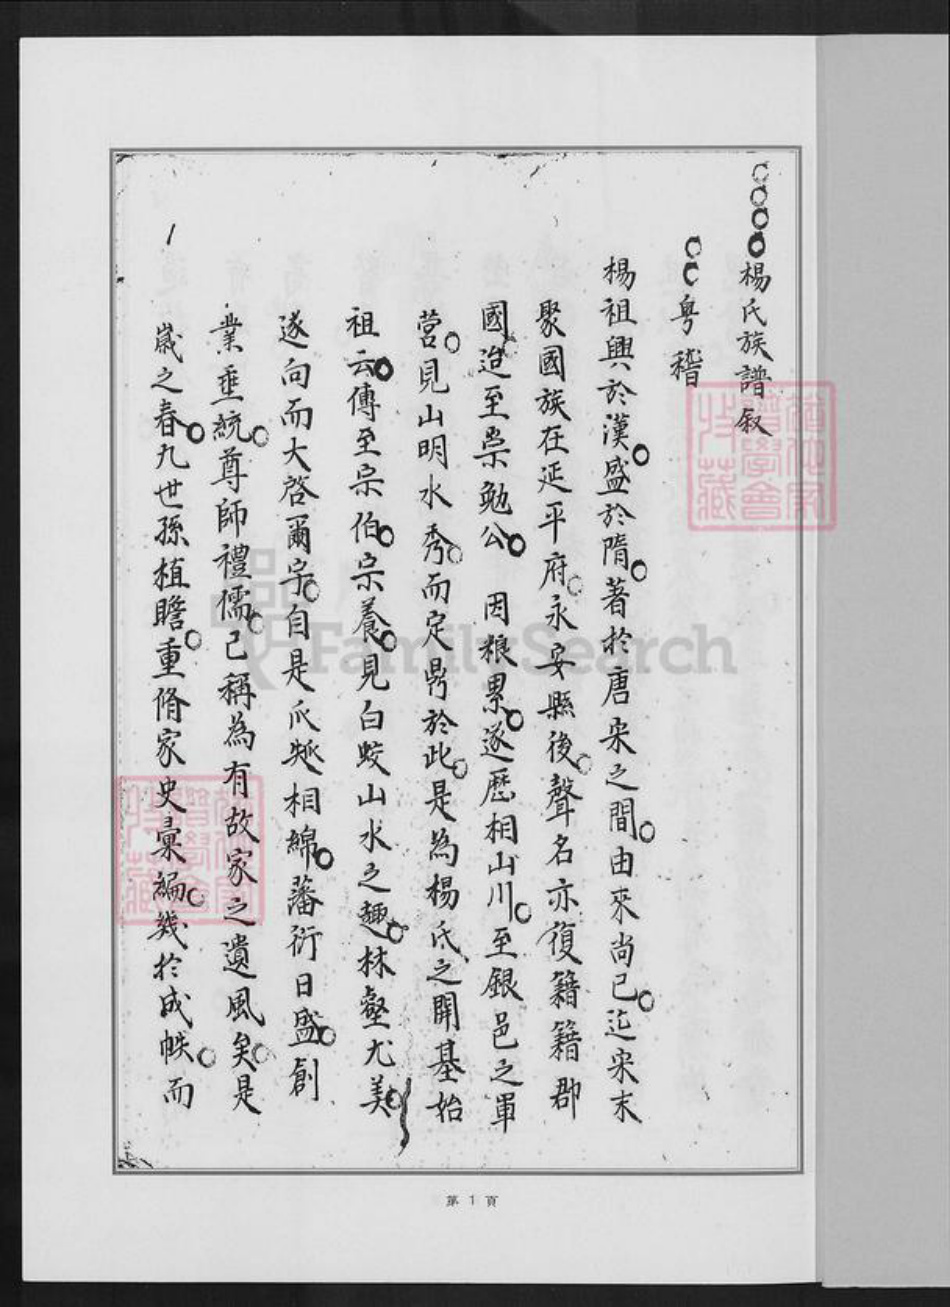 楊氏族譜叙
粤稽
楊祖興於漢盛於隋著於唐宋之間由來尚已迄宋末
聚國族在延平府永安縣後聲名亦復籍籍郡
國迨至崇勉公 因粮累遂歷相山川至銀邑之軍
营見山明水秀而定鼎於此是為楊氏之開基始
祖云傳至宗伯宗養見白蛟山水之趣林壑尤美
遂向而大啓爾宇自是瓜瓞相綿蕃衍日盛創
業垂統尊師禮儒已稱為有故家之遺風矣是
歲之春九世孫植瞻重脩家史彙編幾於成帙而
FamilySearch
第 1 頁